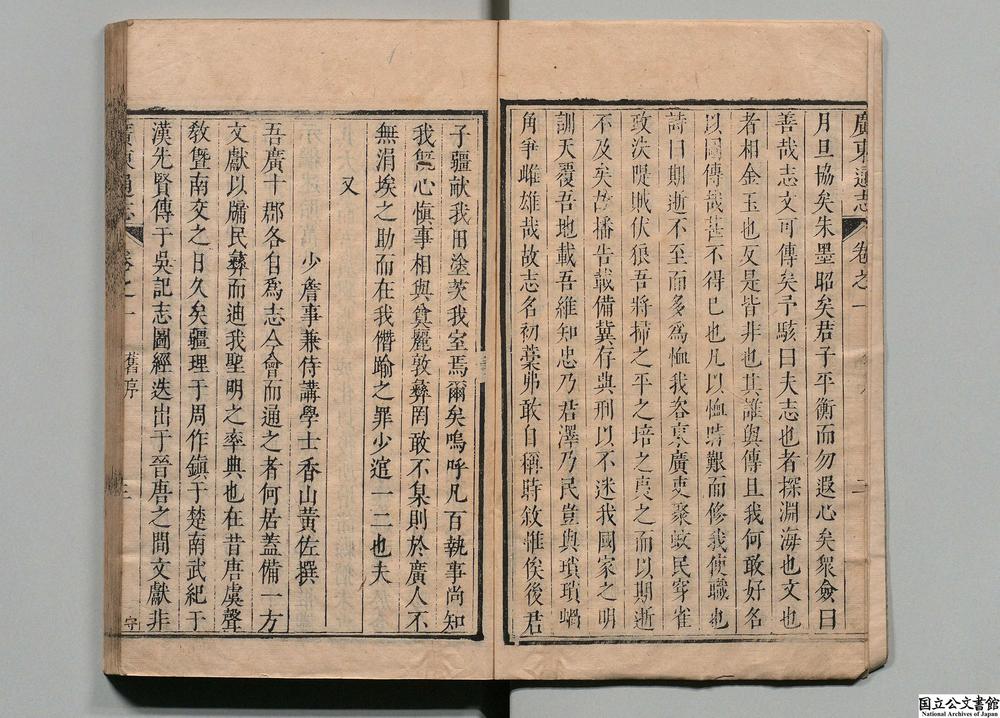 廣東通志 卷之一 二
月旦協矣朱墨昭矣君子平衡而勿遐心矣衆僉曰
善哉志文可傳矣予駭曰夫志也者探淵海也文也
者相金玉也亙是皆非也其誰與傳且我何敢好名
以圖傳哉葢不得已也凡以恤時艱而修我使職也
詩曰期逝不至而多為恤我客東廣吏聚蚊民穿雀
政泆隄賊伏狼吾將掃之平之培之奠之而以期逝
不及矣故播告載備冀存典刑以不迷我國家之明
訓天覆吾地載吾維知忠乃君澤乃民豈與瑣瑣蝸
角爭雌雄哉故志名初藁弗敢自稱時敘惟俟後君
子疆畝我田塗茨我室焉爾矣嗚呼凡百執事尚知
我無心愼事相與奠麗敦彝罔敢不臬則於廣人不
無涓埃之助而在我僭踰之罪少逭一二也夫
又
少詹事兼侍講學士香山黃佐撰
吾廣十郡各自為志今會而通之者何居蓋備一方
文獻以牖民彝而迪我聖明之率典也在昔唐虞聲
敎曁南交之日久矣疆理于周作鎮于楚南武紀于
漢先賢傳于吳記志圖經迭出于晉唐之間文獻非
廣東通志 卷之一 舊序 三 字
国立公文書館
National Archives of Japan